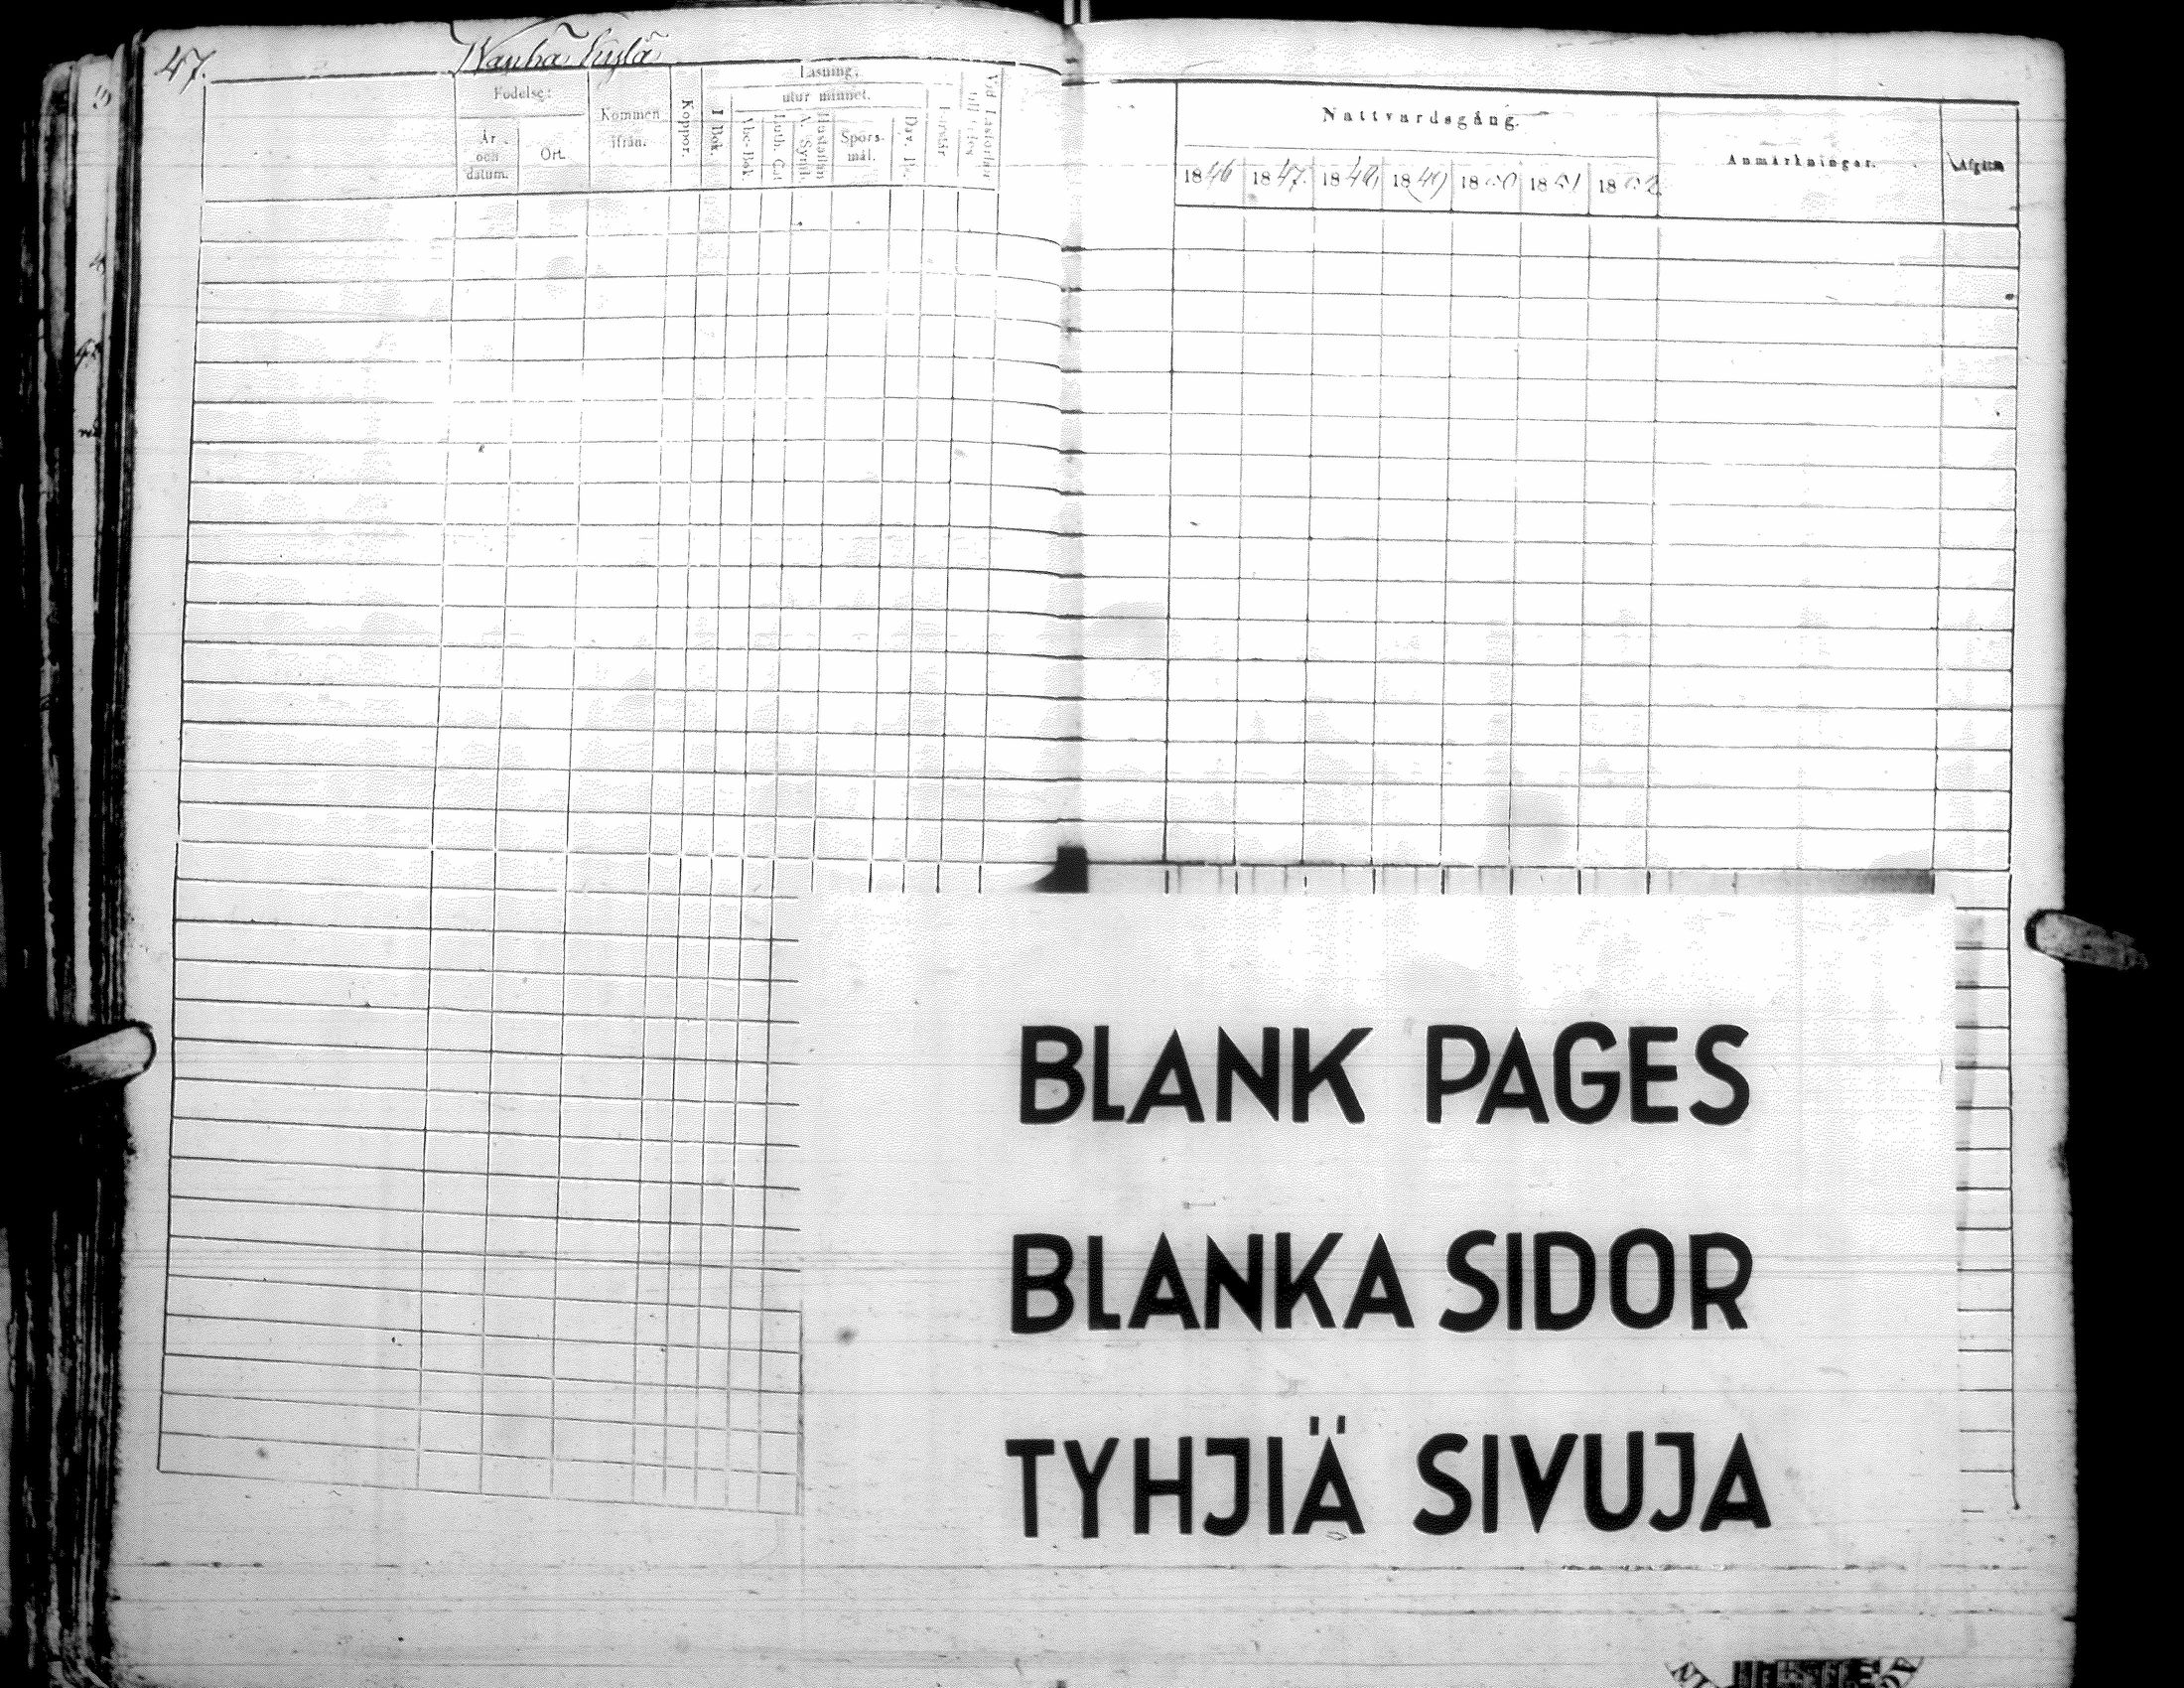 47.
Wanha Kylä
Födelse:
År och datum.
Ort.
Kommen ifrån.
Koppor.
Läsning:
I Bok.
utur minnet.
Abc-Bok.
Luth. Cat
A. Symb.
Spörs-mål.
Dav. Ps.
Nattvardsgång.
1846 1847. 1848, 1849 1850 1851 1852
Anmärkningar.
BLANK PAGES
BLANKA SIDOR
TYHJIÄ SIVUJA